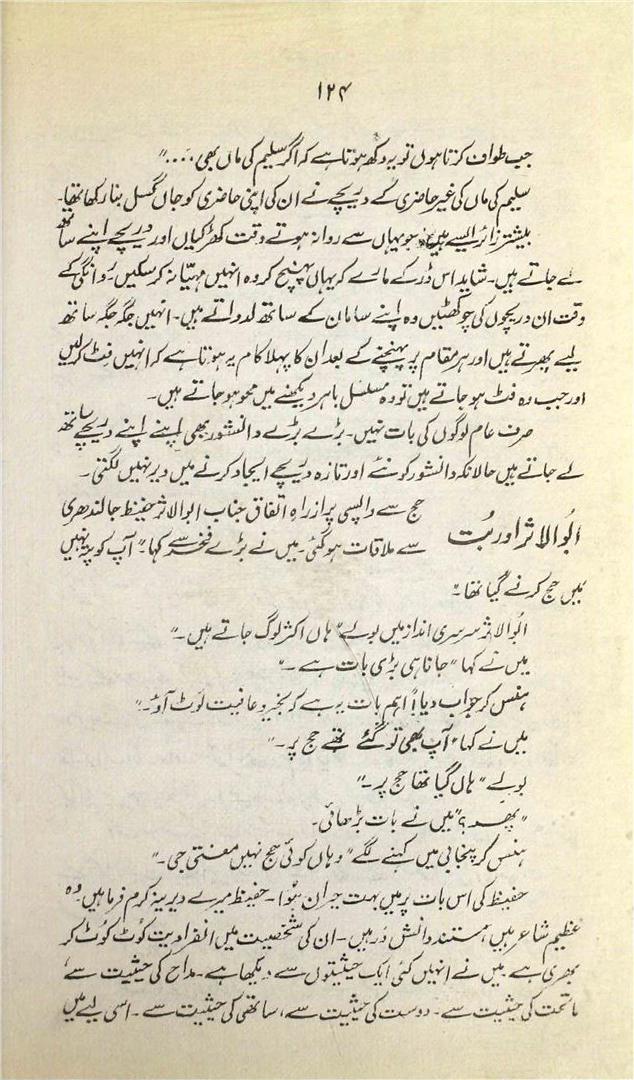 ۱۲۴
جب طواف کرتا ہوں تو یہ دکھ ہوتا ہے کہ اگر سلیم کی ماں بھی ....“
سلیم کی ماں کی غیر حاضری کے دریچے نے ان کی اپنی حاضری کو جاں گسل بنا رکھا تھا۔
بیشتر زائر ایسے ہیں جو یہاں سے روانہ ہوتے وقت کھڑکیاں اور دریچے اپنے ساتھ
لے جاتے ہیں۔ شاید اس ڈر کے مارے کہ یہاں پہنچ کر وہ انہیں مہیّا نہ کر سکیں۔ روانگی کے
وقت ان دریچوں کی چوکھٹیں وہ اپنے سامان کے ساتھ لدواتے ہیں۔ انہیں جگہ جگہ ساتھ
لیے پھرتے ہیں اور ہر مقام پر پہنچنے کے بعد ان کا پہلا کام یہ ہوتا ہے کہ انہیں فِٹ کر لیں
اور جب وہ فٹ ہو جاتے ہیں تو وہ مسلسل باہر دیکھنے میں محو ہو جاتے ہیں۔
صرف عام لوگوں کی بات نہیں۔ بڑے بڑے دانشور بھی اپنے اپنے دریچے ساتھ
لے جاتے ہیں حالانکہ دانشور کو نئے اور تازہ دریچے ایجاد کرنے میں دیر نہیں لگتی۔
ابوالاثر اور بُت
حج سے واپسی پر ازراہِ اتفاق جناب ابوالاثر حفیظ جالندھری
سے ملاقات ہو گئی۔ میں نے بڑے فخر سے کہا ”آپ کو پتہ نہیں
میں حج کرنے گیا تھا۔“
ابوالاثر سرسری انداز میں بولے ”ہاں اکثر لوگ جاتے ہیں۔“
میں نے کہا ”جانا ہی بڑی بات ہے۔“
ہنس کر جواب دیا ”اہم بات یہ ہے کہ بخیر و عافیت لوٹ آؤ۔“
میں نے کہا ”آپ بھی تو گئے تھے حج پر۔“
بولے ”ہاں گیا تھا حج پر۔“
”پھر؟“ میں نے بات بڑھائی۔
ہنس کر پنجابی میں کہنے لگے ”وہاں کوئی حج نہیں مفتی جی۔“
حفیظ کی اس بات پر میں بہت حیران ہوا۔ حفیظ میرے دیرینہ کرم فرما ہیں۔ وہ
عظیم شاعر ہیں، مستند دانش ور ہیں۔ ان کی شخصیت میں انفرادیت کوٹ کوٹ کر
بھری ہے۔ میں نے انہیں کئی ایک حیثیتوں سے دیکھا ہے۔ مداح کی حیثیت سے،
ماتحت کی حیثیت سے۔ دوست کی حیثیت سے، ساتھی کی حیثیت سے۔ اسی لیے میں